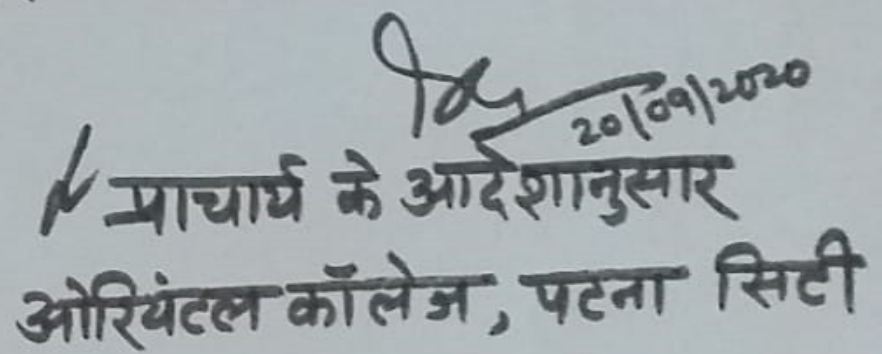 20/09/2020
प्राचार्य के आदेशानुसार
ओरियंटल कॉलेज, पटना सिटी